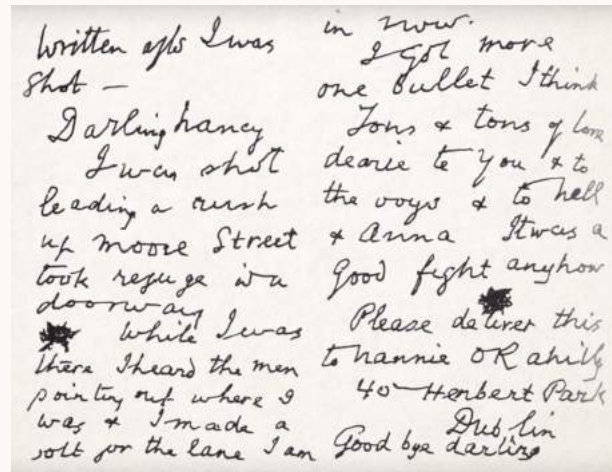 Written after I was
shot —
Darling Nancy
I was shot
leading a rush
up Moore Street
took refuge in a
doorway
While I was
there I heard the men
pointing out where I
was & I made a
bolt for the lane I am
in now.
I got more
one bullet I think
Tons & tons of love
dearie to you & to
the boys & to Nell
& Anna It was a
good fight anyhow
Please deliver this
to Nannie O'Rahilly
40 Herbert Park
Dublin
Good bye darling